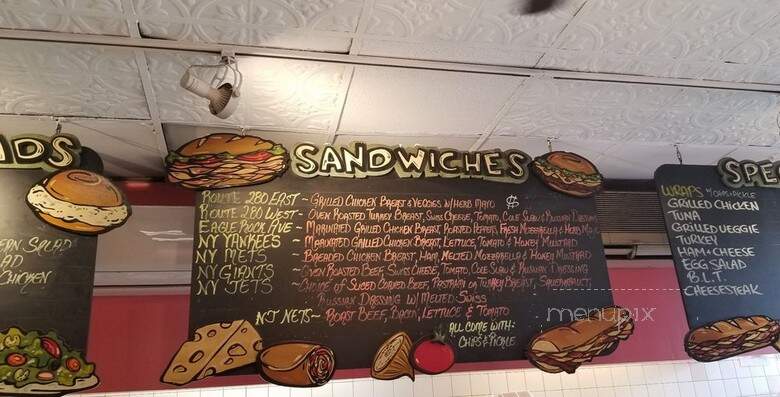 ADS
EAN SALAD
AD
CHICKEN
SANDWICHES
ROUTE 280 EAST ~ GRILLED CHICKEN BREAST & VEGGIES W/ HERB MAYO $
ROUTE 280 WEST ~ OVEN ROASTED TURKEY BREAST, SWISS CHEESE, TOMATO, COLE SLAW & RUSSIAN DRESSING
EAGLE ROCK AVE ~ MARINATED GRILLED CHICKEN BREAST, ROASTED PEPPERS, FRESH MOZZARELLA & HERB MAYO
NY YANKEES ~ MARINATED GRILLED CHICKEN BREAST, LETTUCE, TOMATO & HONEY MUSTARD
NY METS ~ BREADED CHICKEN BREAST, HAM, MELTED MOZZARELLA & HONEY MUSTARD
NY GIANTS ~ OVEN ROASTED BEEF, SWISS CHEESE, TOMATO, COLE SLAW & RUSSIAN DRESSING
NY JETS ~ CHOICE OF SLICED CORNED BEEF, PASTRAMI OR TURKEY BREAST, SAUERKRAUT
RUSSIAN DRESSING W/ MELTED SWISS
NJ NETS ~ ROAST BEEF, BACON, LETTUCE & TOMATO
ALL COME WITH:
CHIPS & PICKLE
SPE
WRAPS W/ CHIPS & PICKLE
GRILLED CHICKEN
TUNA
GRILLED VEGGIE
TURKEY
HAM & CHEESE
EGG SALAD
B.L.T.
CHEESESTEAK
menupix